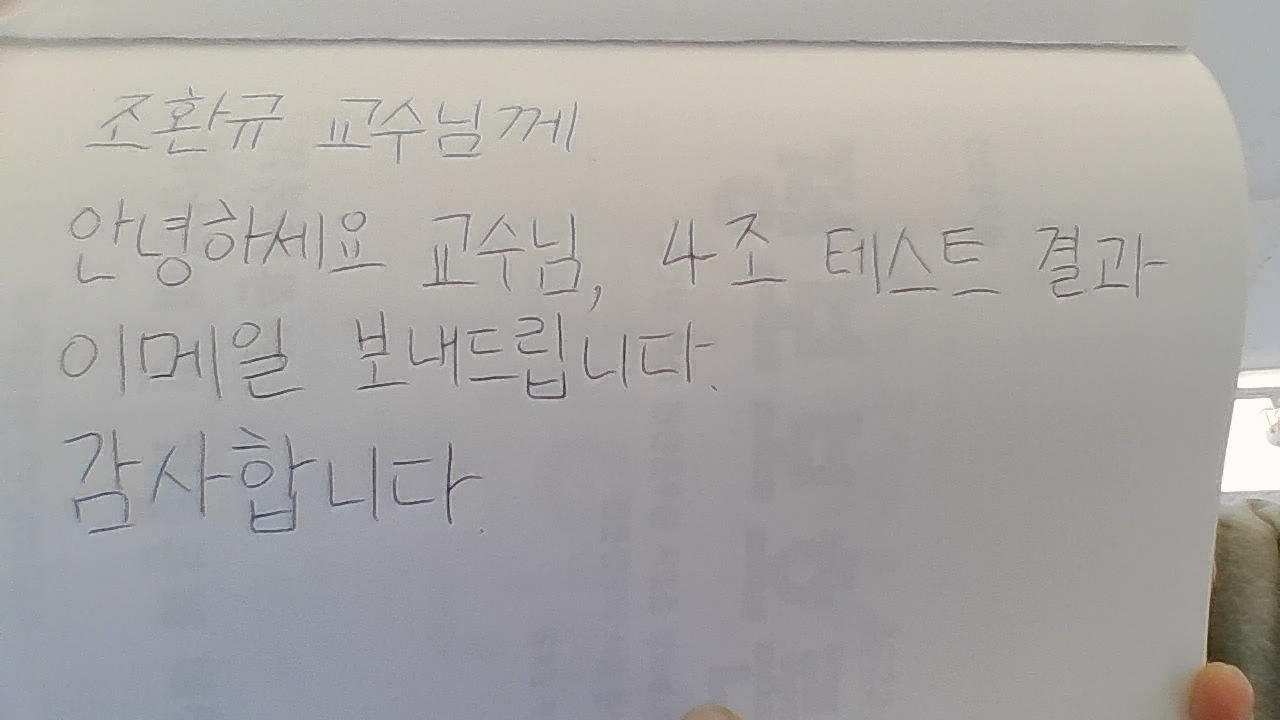 조환규 교수님께
안녕하세요 교수님, 4조 테스트 결과
이메일 보내드립니다.
감사합니다.